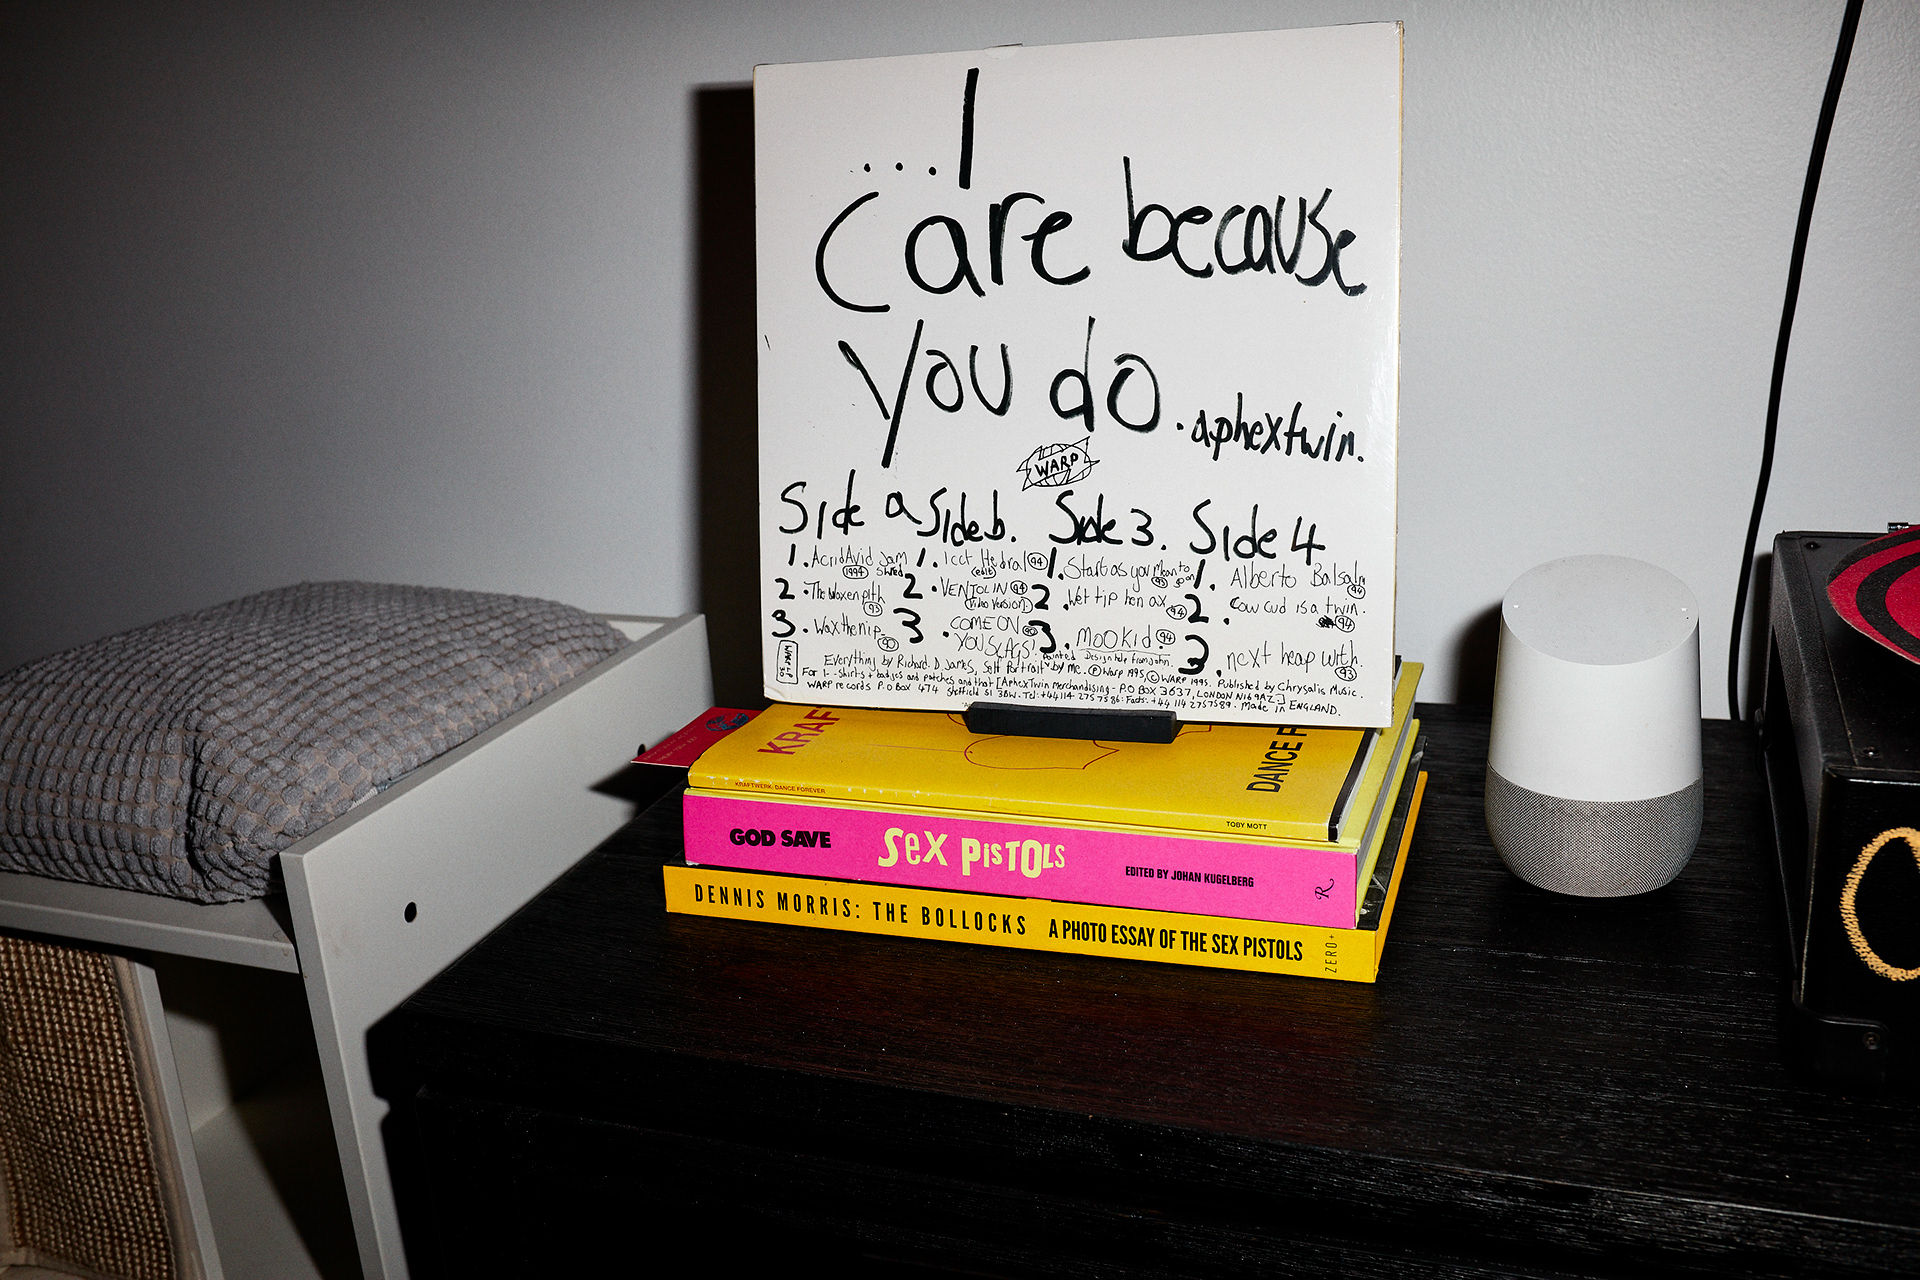 ...I
care because
you do . aphextwin.
WARP
Side a Side b. Side 3. Side 4
1. AcridAvid Jam Shred 1994
2. The Waxen pith 93
3. Wax the nip 90
1. Icct Hedral (edit) 94
2. VENTOLIN (Video Version) 94
3. COME ON YOU SLAGS! 90
1. Start as you Mean to go on 93
2. Wet tip hen ax 94
3. Mookid 94
1. Alberto Balsalm 94
2. Cow cud is a twin. 94
3. next heap with. 93
WARP LP 30
Everything by Richard. D. James, Self Portrait painted by me. Design help from John. Ⓟ Warp 1995, © WARP 1995. Published by Chrysalis Music.
For T-Shirts + badges and patches and that [AphexTwin Merchandising - P.O BOX 3637, LONDON N16 9AZ.]
WARP records P.O Box 474 Sheffield S1 3BW. Tel: +44 114 2757586: Facts: +44 114 2757589. Made in ENGLAND.
KRAF
DANCE F
KRAFTWERK: DANCE FOREVER
TOBY MOTT
GOD SAVE SEX PiSTOLS EDITED BY JOHAN KUGELBERG R
DENNIS MORRIS: THE BOLLOCKS A PHOTO ESSAY OF THE SEX PISTOLS ZERO+